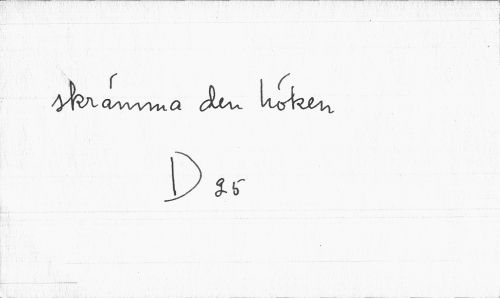 skrámma den hóken
D 25